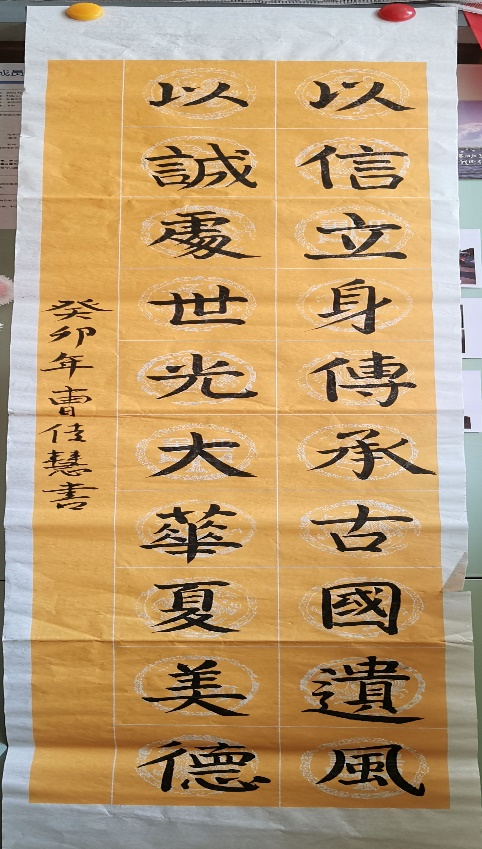 以信立身傳承古國遺風
以誠處世光大華夏美德
癸卯年曹佳慧書